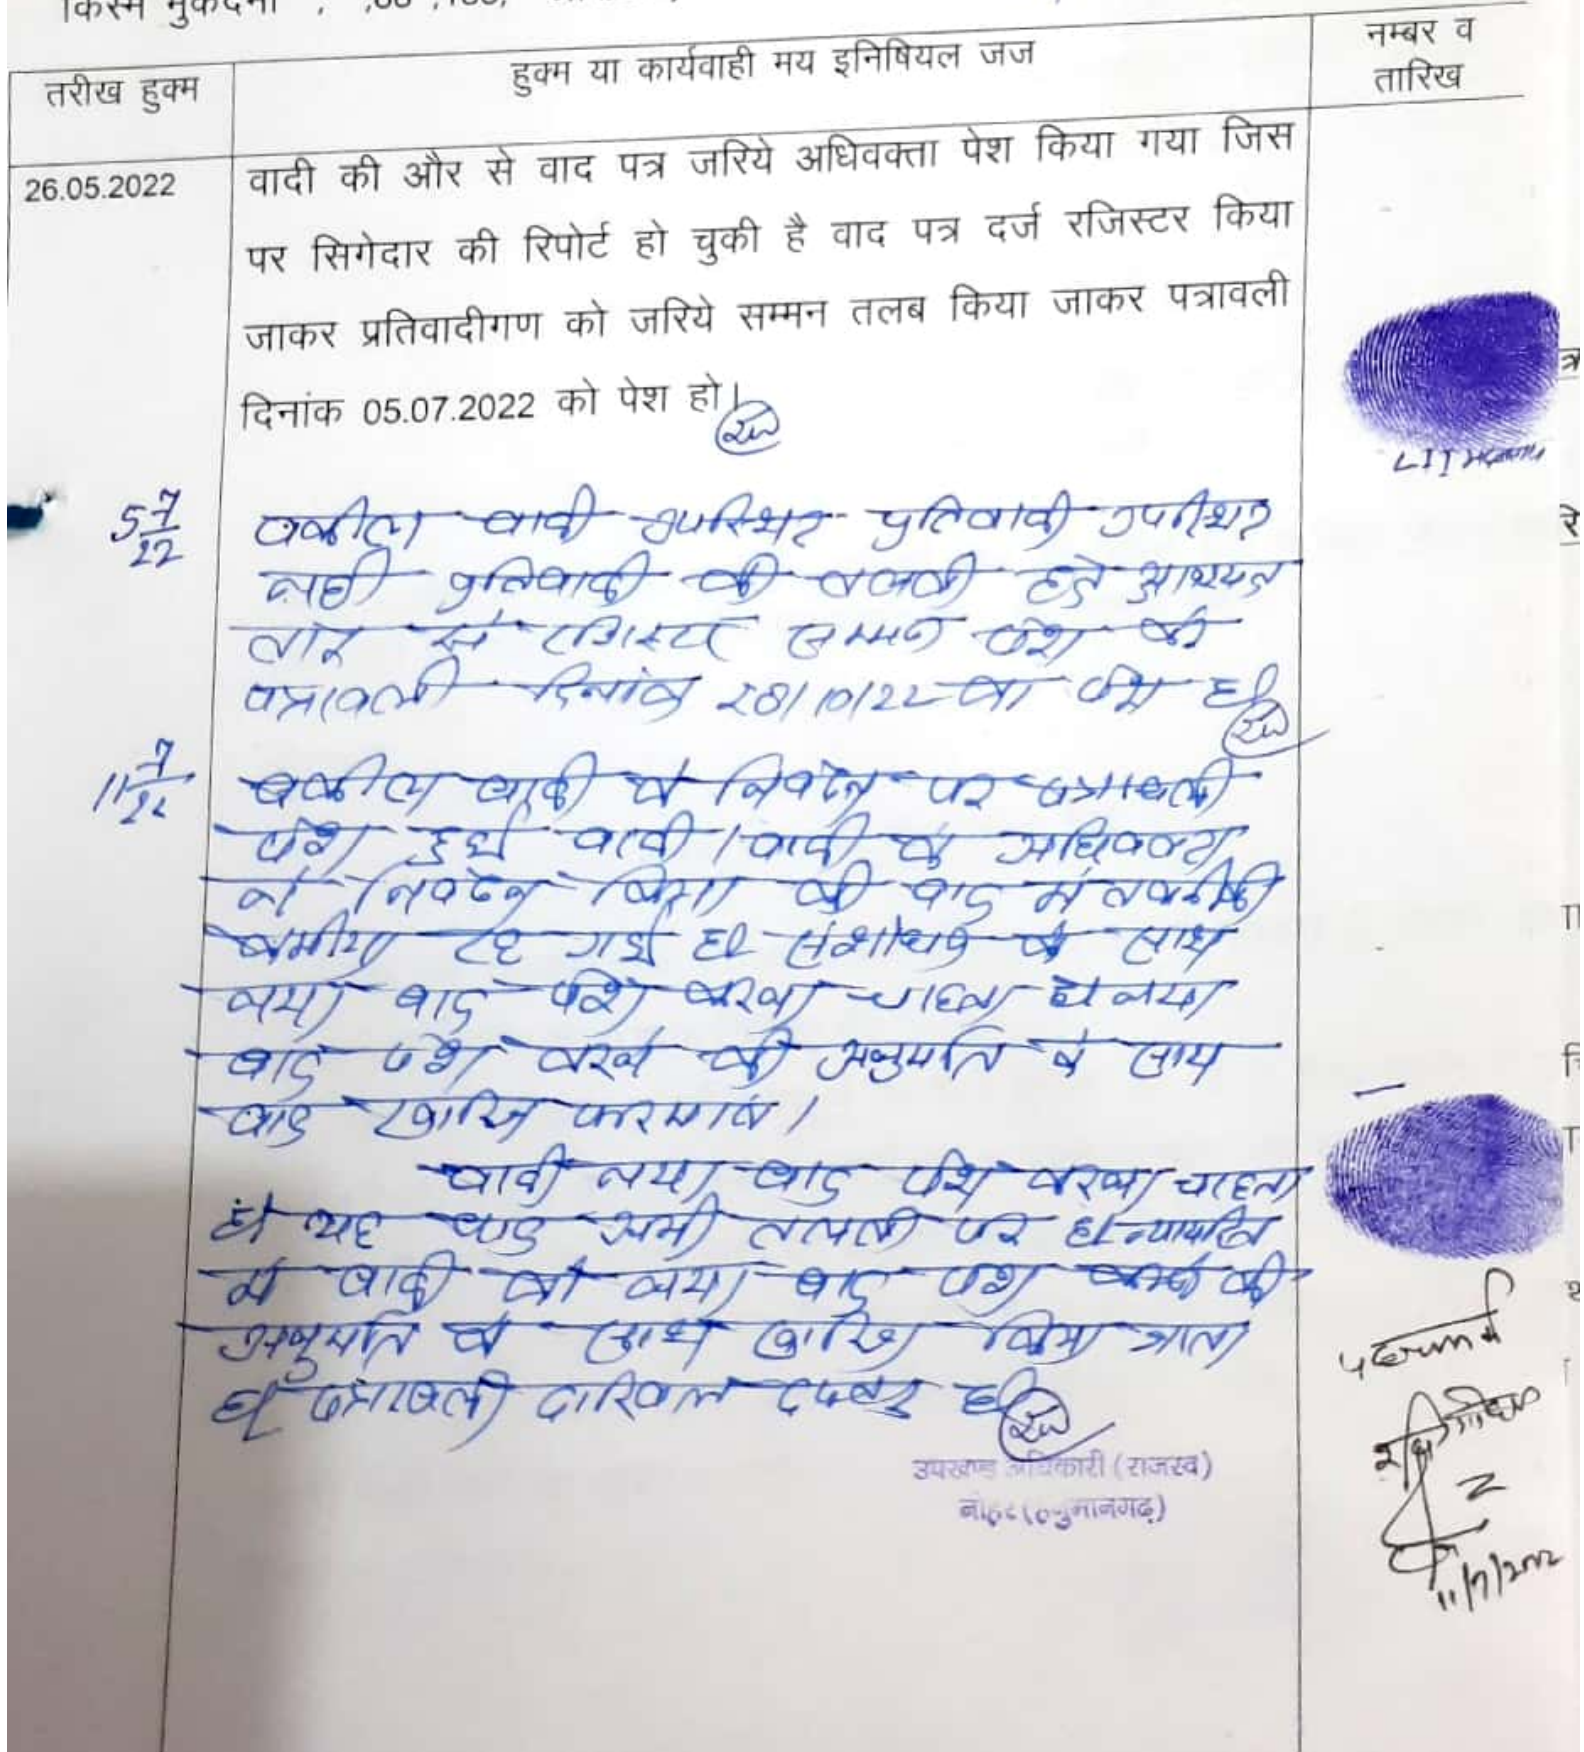 किस्म मुकदमा
तरीख हुक्म
हुक्म या कार्यवाही मय इनिषियल जज
नम्बर व
तारिख
26.05.2022
वादी की और से वाद पत्र जरिये अधिवक्ता पेश किया गया जिस
पर सिगेदार की रिपोर्ट हो चुकी है वाद पत्र दर्ज रजिस्टर किया
जाकर प्रतिवादीगण को जरिये सम्मन तलब किया जाकर पत्रावली
दिनांक 05.07.2022 को पेश हो।
5 7/22
वकील वादी उपस्थित प्रतिवादी उपस्थित
नही प्रतिवादी की तलबी हेतु
से रजिस्टर्ड सम्मन पेश करे
पत्रावली दिनांक 28/10/22 को पेश हो
11 7/22
वकील वादी के निवेदन पर पत्रावली
पेश हुई वादी / वादी के अधिवक्ता
ने निवेदन किया की वाद में तकनीकी
कमीया रह गई है संशोधन के साथ
नया वाद पेश करना चाहता है नया
वाद पेश करने की अनुमति के साथ
वाद खारिज फरमावे।
वादी नया वाद पेश करना चाहता
है यह वाद अभी तलबी पर है न्यायहित
में वादी को नया वाद पेश करने की
अनुमति के साथ खारिज किया जाता
है पत्रावली दाखिल दफ्तर हो
उपखण्ड अधिकारी (राजस्व)
नोहर (हनुमानगढ़)
LTI
11/7/2022